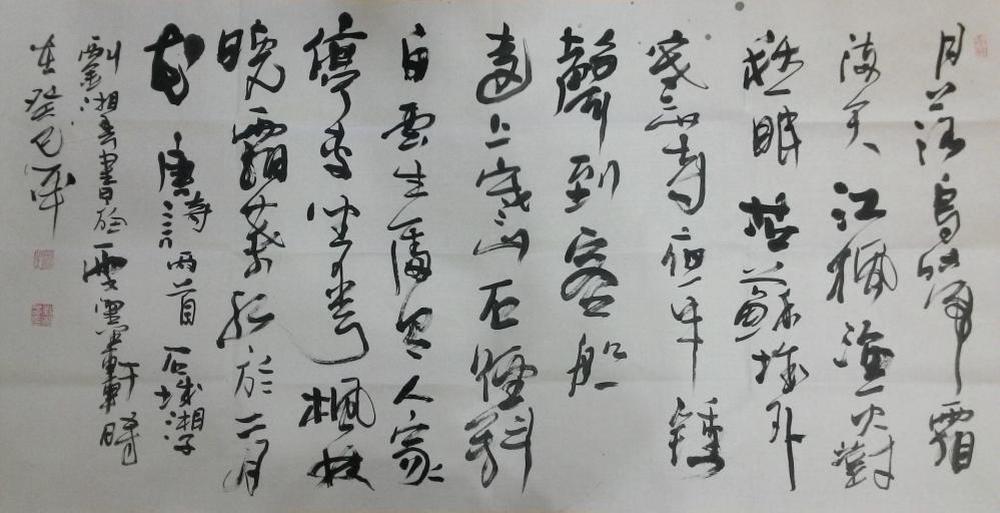 月落烏啼霜
滿天江楓漁火對
愁眠姑蘇城外
寒山寺夜半鐘
聲到客船
遠上寒山石徑斜
白雲生處有人家
停車坐愛楓林
晚霜葉紅於二月
花 唐詩兩首 石城湘子
劉湘書於軒午時
在癸巳年